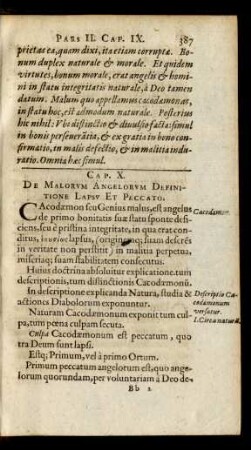 PARS II. CAP. IX. 387
prietas ea, quam dixi, ita etiam corrupta. Bo-
num duplex naturale & morale. Et quidem
virtutes, bonum morale, erat angelis & homi-
ni in statu integritatis naturale, à Deo tamen
datum. Malum quo appellamus cacodæmones,
in statu hoc, est admodum naturale. Posterius
hic nihil: Vbi distinctio & divulsio facta simul
in bonis perseverātia, & ex gratia in bono con-
firmatio, in malis defectio, & in malitia indu-
ratio. Omnia hæc simul.
CAP. X.
DE MALORVM ANGELORVM DEFINI-
TIONE LAPSV ET PECCATO.
CAcodæmon seu Genius malus, est angelus
de primo bonitatis suæ statu sponte defi-
ciens, seu è pristina integritate, in qua erat con-
ditus, lapsus, (originemq; suam deserēs
in veritate non perstitit) in malitia perpetua,
miseriaq; suam stabilitatem consecutus.
Cacodæmon.
Huius doctrina absolvitur explicatione, tum
descriptionis, tum distinctionis Cacodæmonū.
In descriptione explicanda Natura, status &
actiones Diabolorum exponuntur.
Descriptio Ca-
codæmonum
versatur.
I. Circa naturā.
Naturam Cacodæmonum exponit tum cul-
pa, tum pœna culpam secuta.
Culpa Cacodæmonum est peccatum, quo
tra Deum sunt lapsi.
Estq; Primum, vel à primo Ortum.
Primum peccatum angelorum est, quo ange-
lorum quorundam, per voluntariam à Deo de-
Bb 2